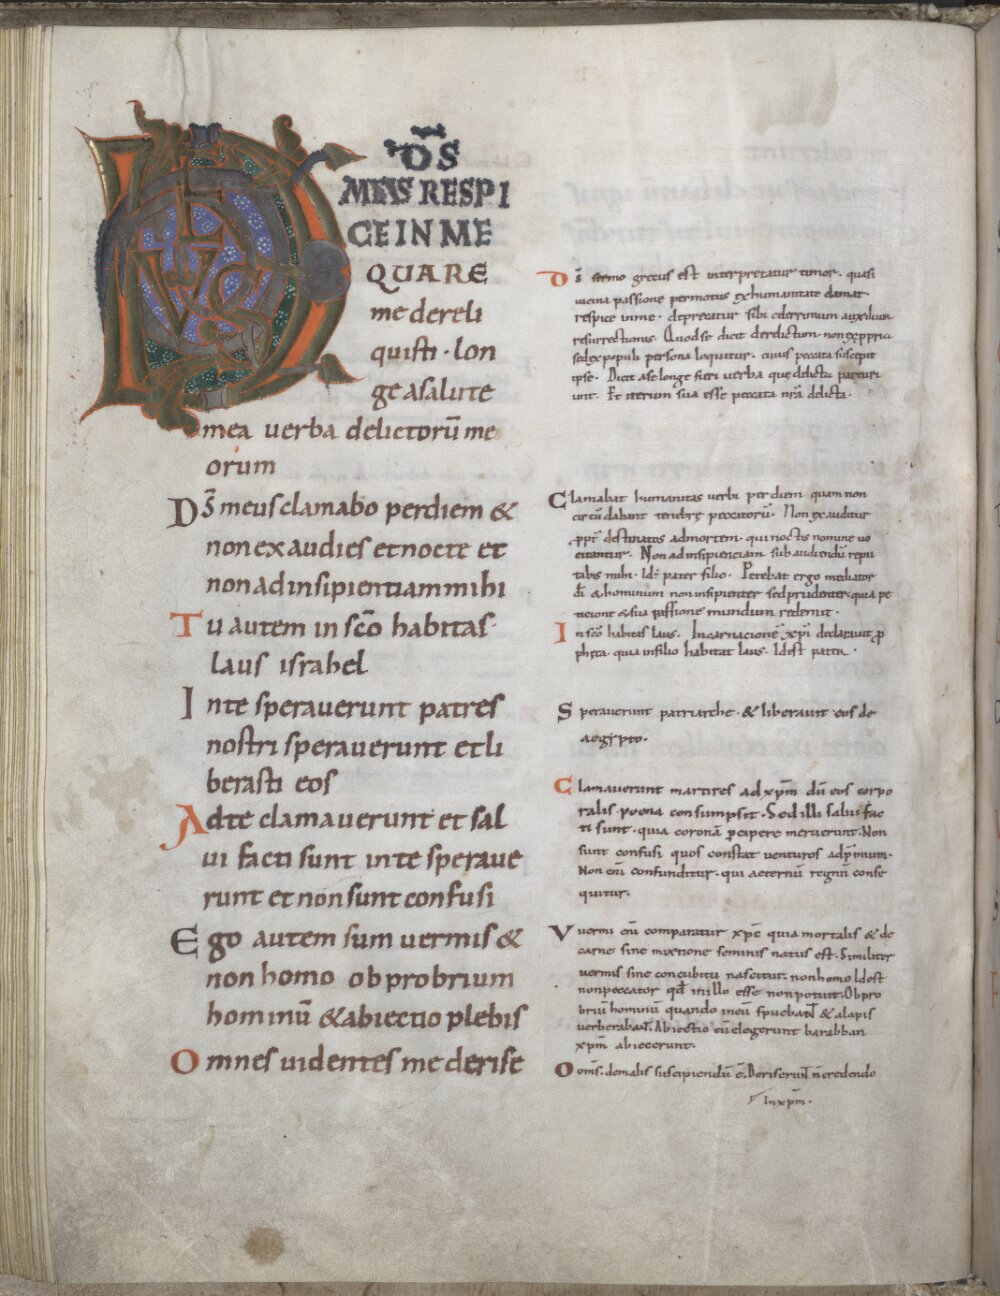 DEUS
D̅S
MEUS RESPI
CE IN ME
QUARE
me dereli
quisti · Lon
ge a salute
mea verba delictorū me
orum
Ds̄ meus clamabo per diem &
non exaudies et nocte et
non ad insipientiam mihi
Tu autem in sc̄o habitas·
laus israhel
In te speraverunt patres
nostri speraverunt et li
berasti eos
Ad te clamaverunt et sal
vi facti sunt in te sperave
runt et non sunt confusi
Ego autem sum vermis &
non homo obprobrium
hominū & abiectio plebis
Omnes uidentes me derise
Ds̄ sermo grecus est interpretatur timor· quasi
uicina passione permotus ex humanitate clamat·
respice in me· deprecatur sibi celerrimum auxilium
resurrectionis· Quod se dicit derelictum· non ex ppria
sed ex populi persona loquitur· cuius peccata suscepit
ipse· Dicit a se longe fieri verba que delicta pariuri
unt· Et iterum sua esse peccata nr̄a delicta·
Clamabat humanitas verbi per diem quam non
circūdabant tenebrę peccatorū· Non exauditur
ppt̄ destinatos ad mortem· qui noctis nomine uo
citantur· Non ad insipienciam subaudiendū repu
tabis mihi· Id: pater filio· Petebat ergo mediator
dī & hominum non insipienter sed prudenter· quia pe
ticione & sua passione mundum redemit·
In sc̄o habitas laus· Incarnacionē xp̄i declaravit p
pheta· quia in filio habitat laus· Id est pater·
Speraverunt patriarche· & liberavit eos de
aegypto·
Clamaverunt martires ad xp̄m dū eos corpo
ralis poena consumpsit· Sed illi salvi fac
ti sunt· quia coronā pcipere meruerunt· Non
sunt confusi quos constat venturos ad p̄mium·
Non enī confunditur· qui aeternū regnū conse
quitur·
Vuermi enī comparatur xp̄c quia mortalis & de
carne sine mixtione seminis natus est· Similiter
vermis sine concubitu nascitur· non homo Id est
non peccator qd̄ in illo esse non potuit· Obpro
briū hominū quando in eū spuebant & alapis
verberabant· Abiectio cū elegerunt barabban
xp̄m abiecerunt·
Oom̄s· de malis suscipiendū ē· Deriserunt n̄ credendo
in xp̄m·